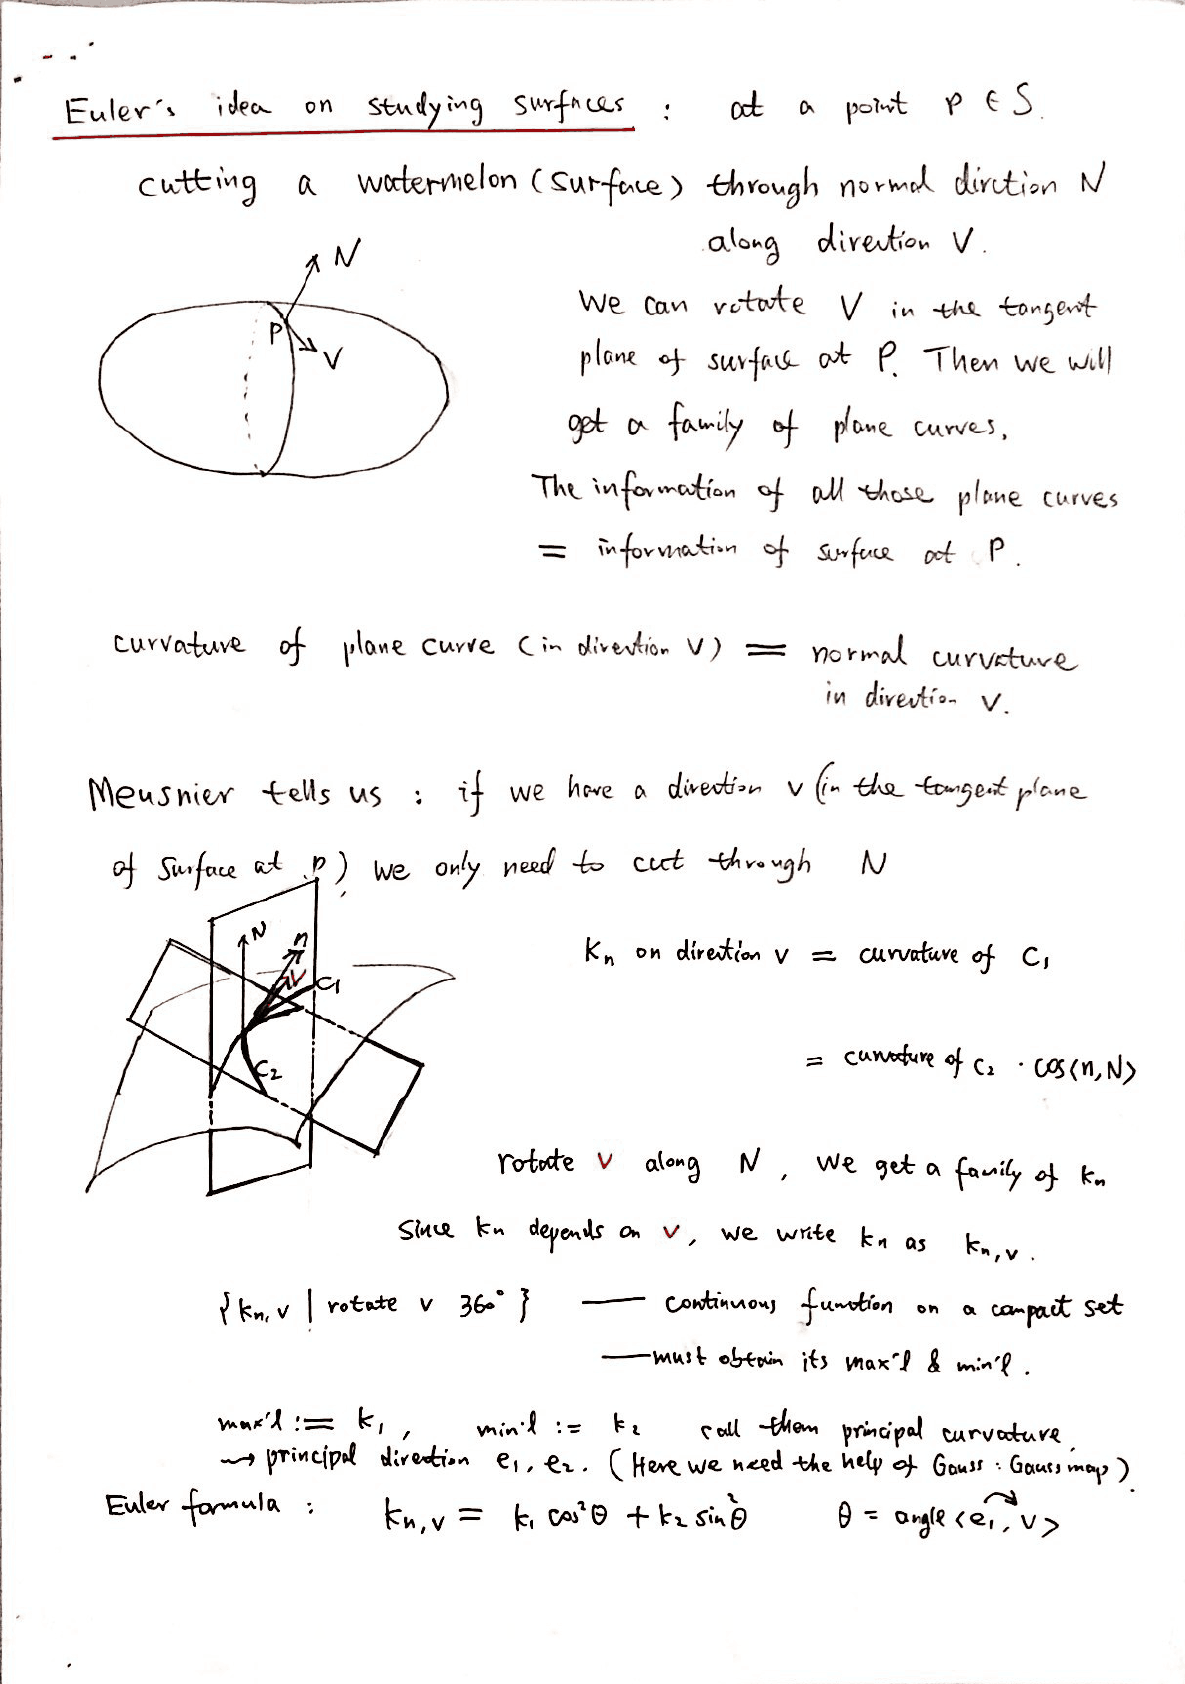 Euler's idea on studying surfaces : at a point p ∈ S.
cutting a watermelon (surface) through normal dirction N
along direction V.
N
P
V
We can rotate V in the tangent
plane of surface at P. Then we will
get a family of plane curves,
The information of all those plane curves
= information of surface at P.
curvature of plane curve (in direction V) = normal curvature
in direction V.
Meusnier tells us : if we have a direction v (in the tangent plane
of surface at p), we only need to cut through N
N
n
V
C₁
C₂
Kₙ on direction v = curvature of C₁
= curvature of C₂ · cos<n, N>
rotate v along N, we get a family of kₙ
Since kₙ depends on v, we write kₙ as kₙ,ᵥ.
{kₙ,ᵥ | rotate v 360° } — continuous function on a compact set
— must obtain its max'l & min'l.
max'l := k₁, min'l := k₂ call them principal curvature.
⇝ principal direction e₁, e₂. (Here we need the help of Gauss : Gauss map).
Euler formula : kₙ,ᵥ = k₁ cos²θ + k₂ sin²θ θ = angle <e₁, v>